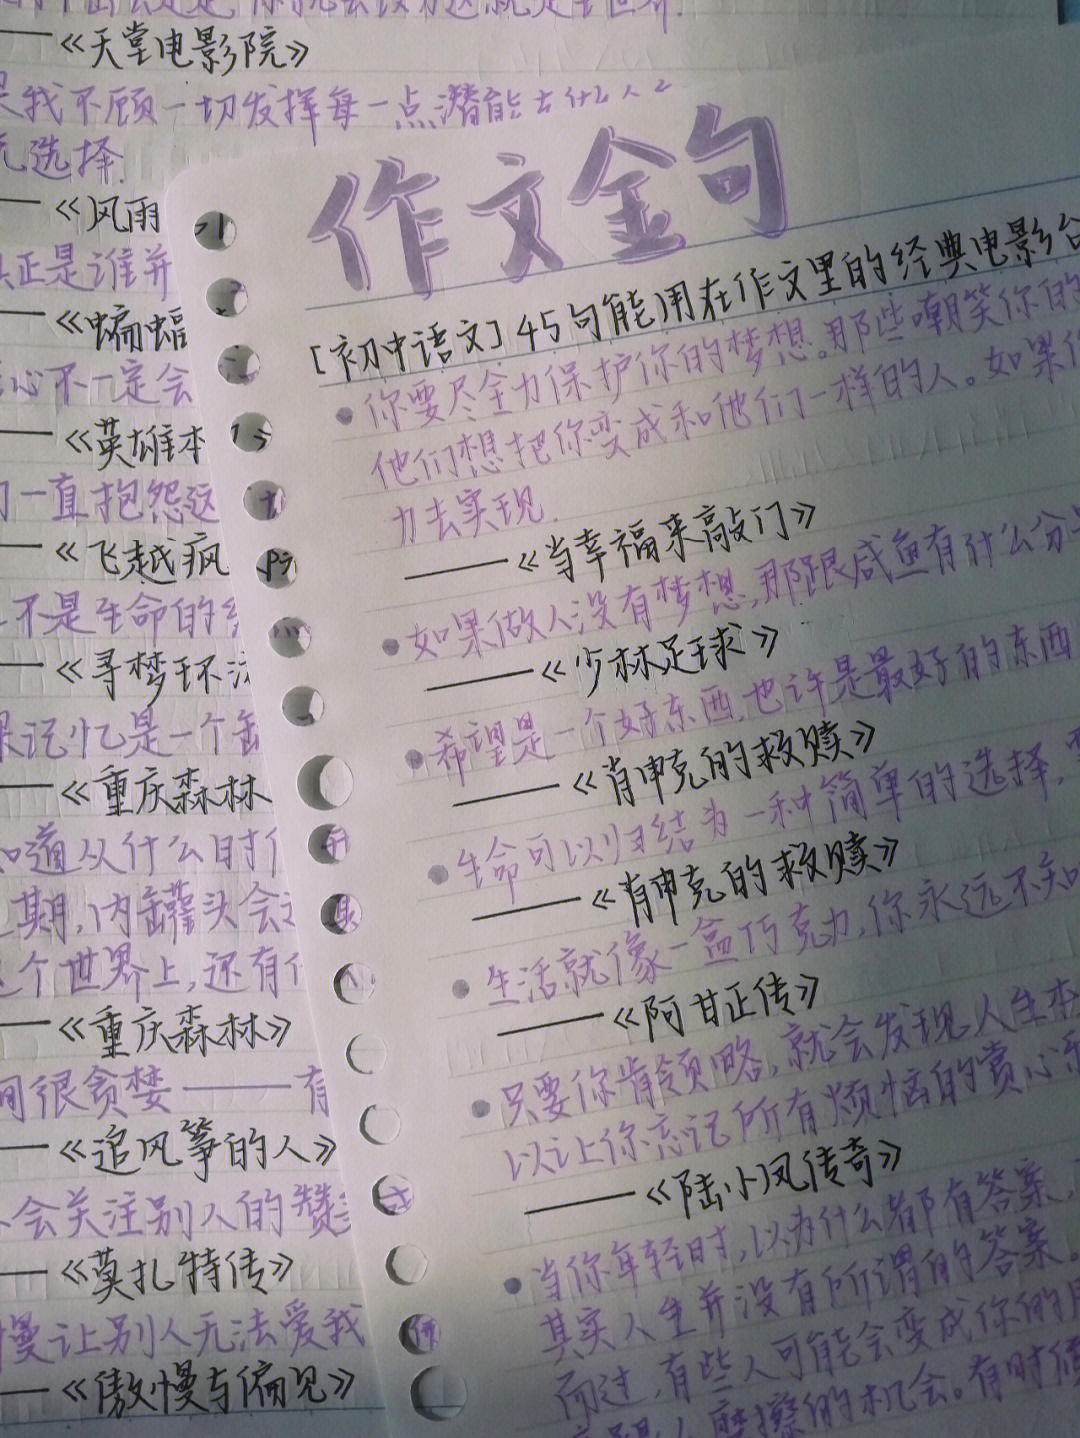 ——《天堂电影院》
我不顾一切发挥每一点潜能去什么人
选择.
——《风雨
正是谁并
——《蝙蝠
心不一定会
——《英雄本
一直抱怨这
——《飞越疯
不是生命的终
——《寻梦环
记忆是一个
——《重庆森林
知道从什么时
期,肉罐头会过
个世界上,还有什
——《重庆森林》
间很贪婪——有
——《追风筝的人》
会关注别人的赞
——《莫扎特传》
慢让别人无法爱我
——《傲慢与偏见》
作文金句
[初中语文]45句能用在作文里的经典电影台
• 你要尽全力保护你的梦想。那些嘲笑你的
他们想把你变成和他们一样的人。如果你
力去实现.
——《当幸福来敲门》
• 如果做人没有梦想,那跟咸鱼有什么分
——《少林足球》
• 希望是一个好东西,也许是最好的东西
——《肖申克的救赎》
• 生命可以归结为一种简单的选择,
——《肖申克的救赎》
• 生活就像一盒巧克力,你永远不知
——《阿甘正传》
• 只要你肯领略,就会发现人生本
以让你忘记所有烦恼的赏心乐
——《陆小凤传奇》
• 当你年轻时,以为什么都有答案,
其实人生并没有所谓的答案。
而过,有些人可能会变成你的
人摩擦的机会。有时候